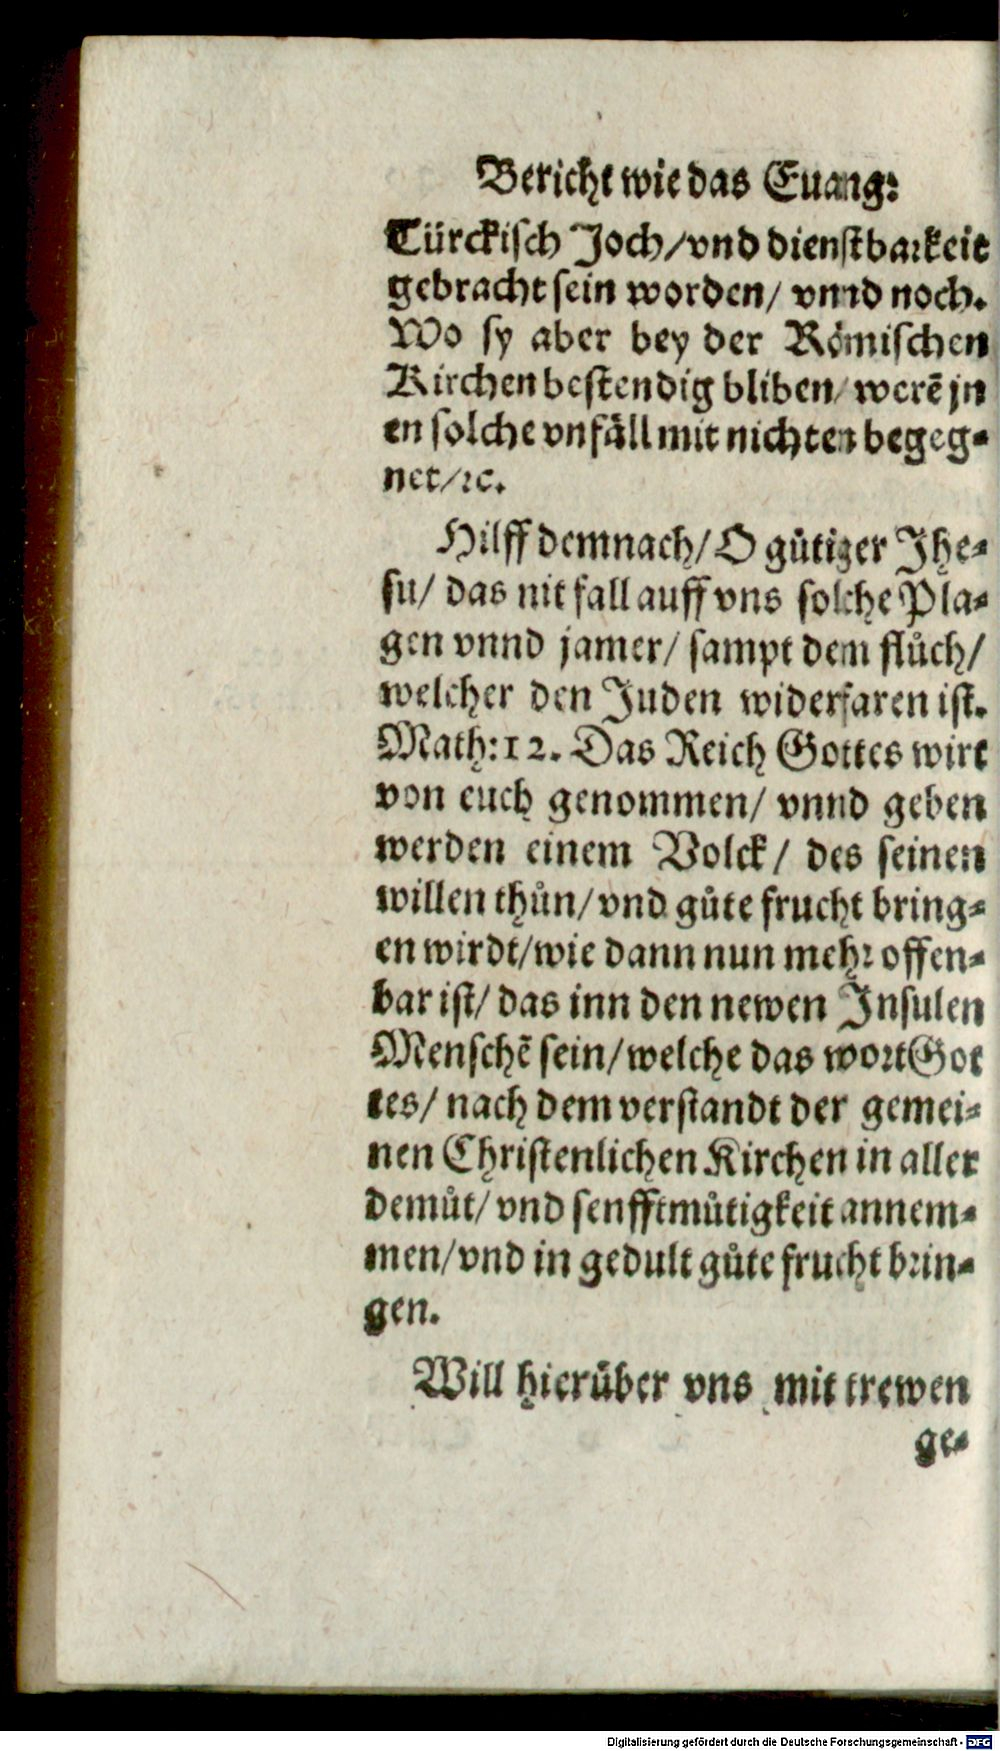 Bericht wie das Euang:
Türckisch Joch/vnd dienstbarkeit
gebracht sein worden/ vnnd noch.
Wo sy aber bey der Römischen
Kirchen bestendig bliben/ werẽ jn
en solche vnfäll mit nichten begeg⸗
net/ꝛc.
Hilff demnach/ O gütiger Jhe⸗
su/ das nit fall auff vns solche Pla⸗
gen vnnd jamer/ sampt dem flůch/
welcher den Juden widerfaren ist.
Math:12. Das Reich Gottes wirt
von euch genommen/ vnnd geben
werden einem Volck/ des seinen
willen thůn/ vnd gůte frucht bring⸗
en wirdt/wie dann nun mehr offen⸗
bar ist/ das inn den newen Insulen
Menschẽ sein/welche das wort Got
tes/ nach dem verstandt der gemei⸗
nen Christenlichen Kirchen in aller
demůt/ vnd senfftmůtigkeit annem⸗
men/vnd in gedult gůte frucht brin⸗
gen.
Will hierüber vns mit trewen
ge⸗
Digitalisierung gefördert durch die Deutsche Forschungsgemeinschaft - DFG